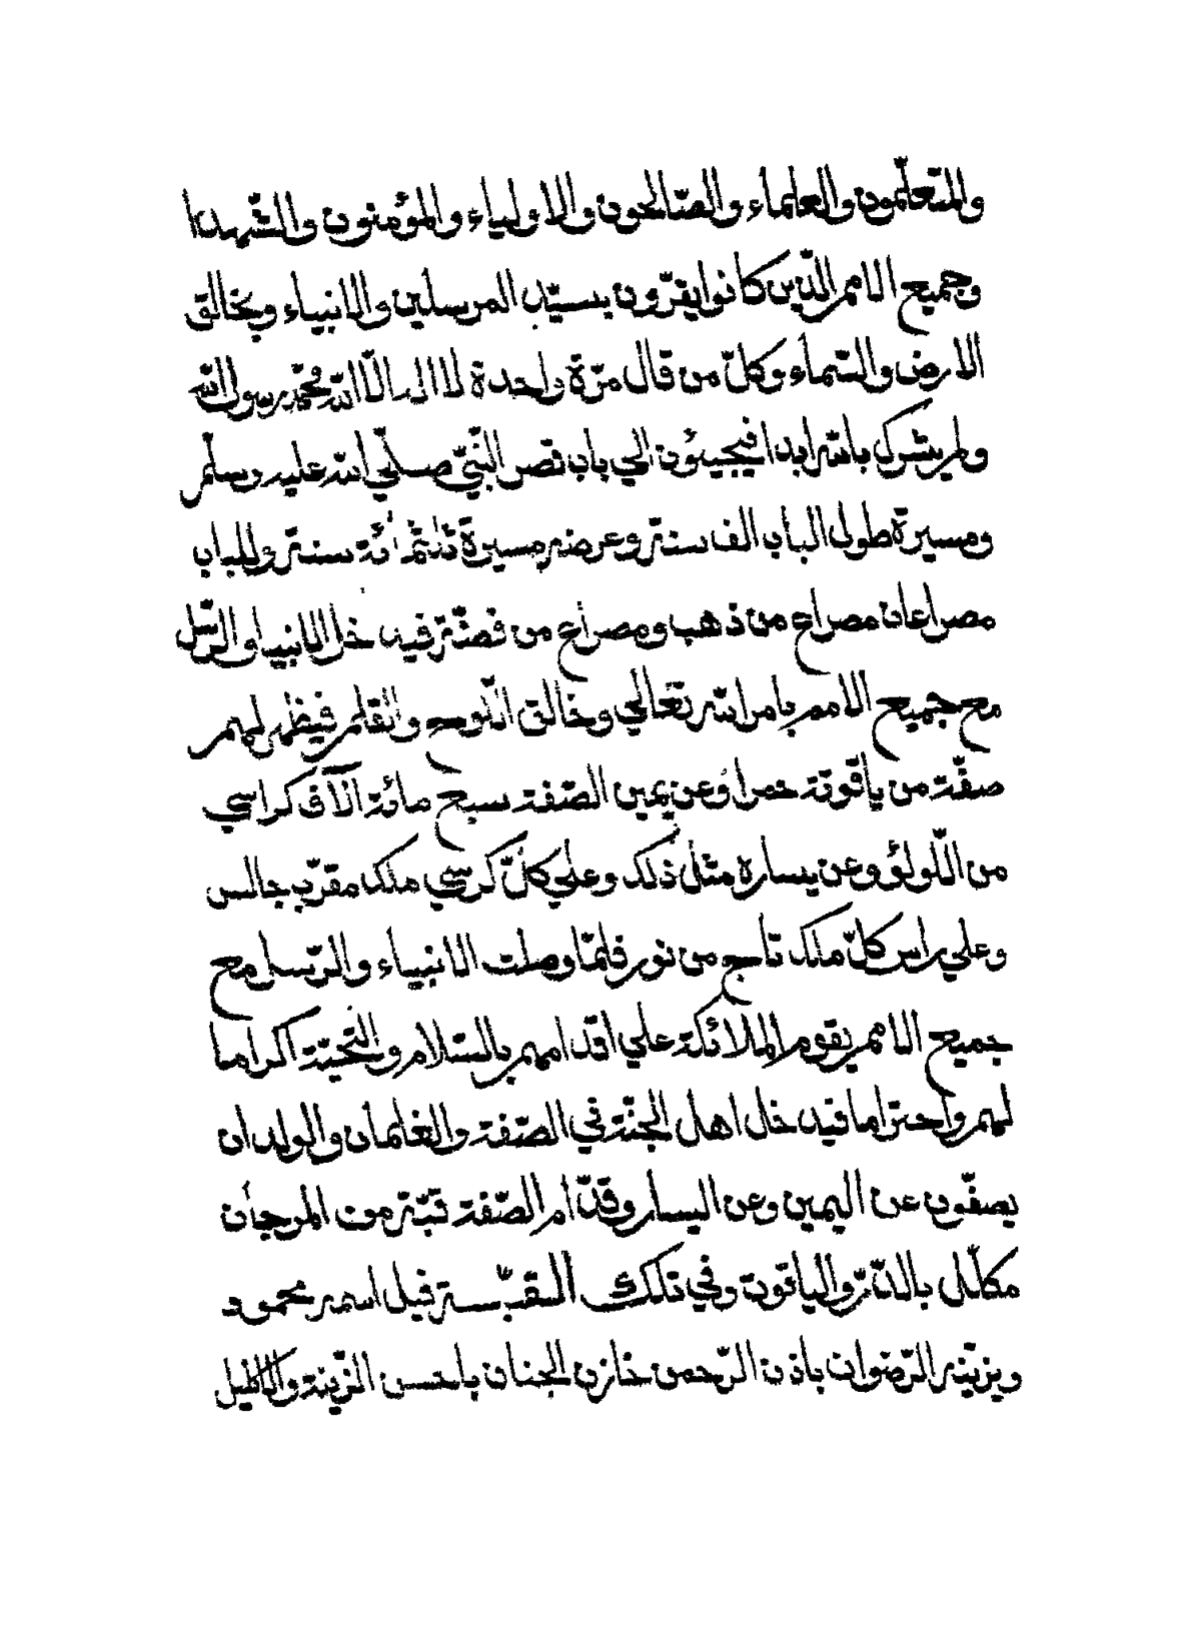 والمتعلّمون والعلماء والصّالحون والاولياء والمؤمنون والشّهدا
وجميع الامم الّذين كانوا يقرّون بسيّد المرسلين والانبياء وبخالق
الارض والسّماء وكلّ من قال مرّة واحدة لا اله الّا الله محمّد رسول الله
ولم يشرك بالله ابدا فيجيئون الي باب قصر النّبيّ صلّي الله عليه وسلّم
ومسيرة طول الباب الف سنة وعرضه مسيرة ثلثمائة سنة وللباب
مصراعان مصراع من ذهب ومصراع من فضّة فيدخل الانبيا والرّسل
مع جميع الامم بامر الله تعالي وخالق اللّوح والقلم فيظهر لهم
صفّة من ياقوتة حمرا وعن يمين الصّفة سبع مائة آلاف كراسي
من اللّولؤ وعن يساره مثل ذلك وعلي كلّ كرسي ملك مقرّب جالس
وعلي راس كلّ ملك تاج من نور فلمّا وصلت الانبياء والرّسل مع
جميع الامم يقوم الملائكة علي اقدامهم بالسّلام والتّحيّة اكراما
لهم واحتراما فيدخل اهل الجنّة في الصّفة والغلمان والولدان
يصفّون عن اليمين وعن اليسار وقدّام الصّفة قبّة من المرجان
مكلّلى بالدّرّ والياقوت وفي تلك القبّة فيل اسمه محمود
ويزيّنه الرّضوان باذن الرّحمن خازن الجنان باحسن الزّينة والاكليل